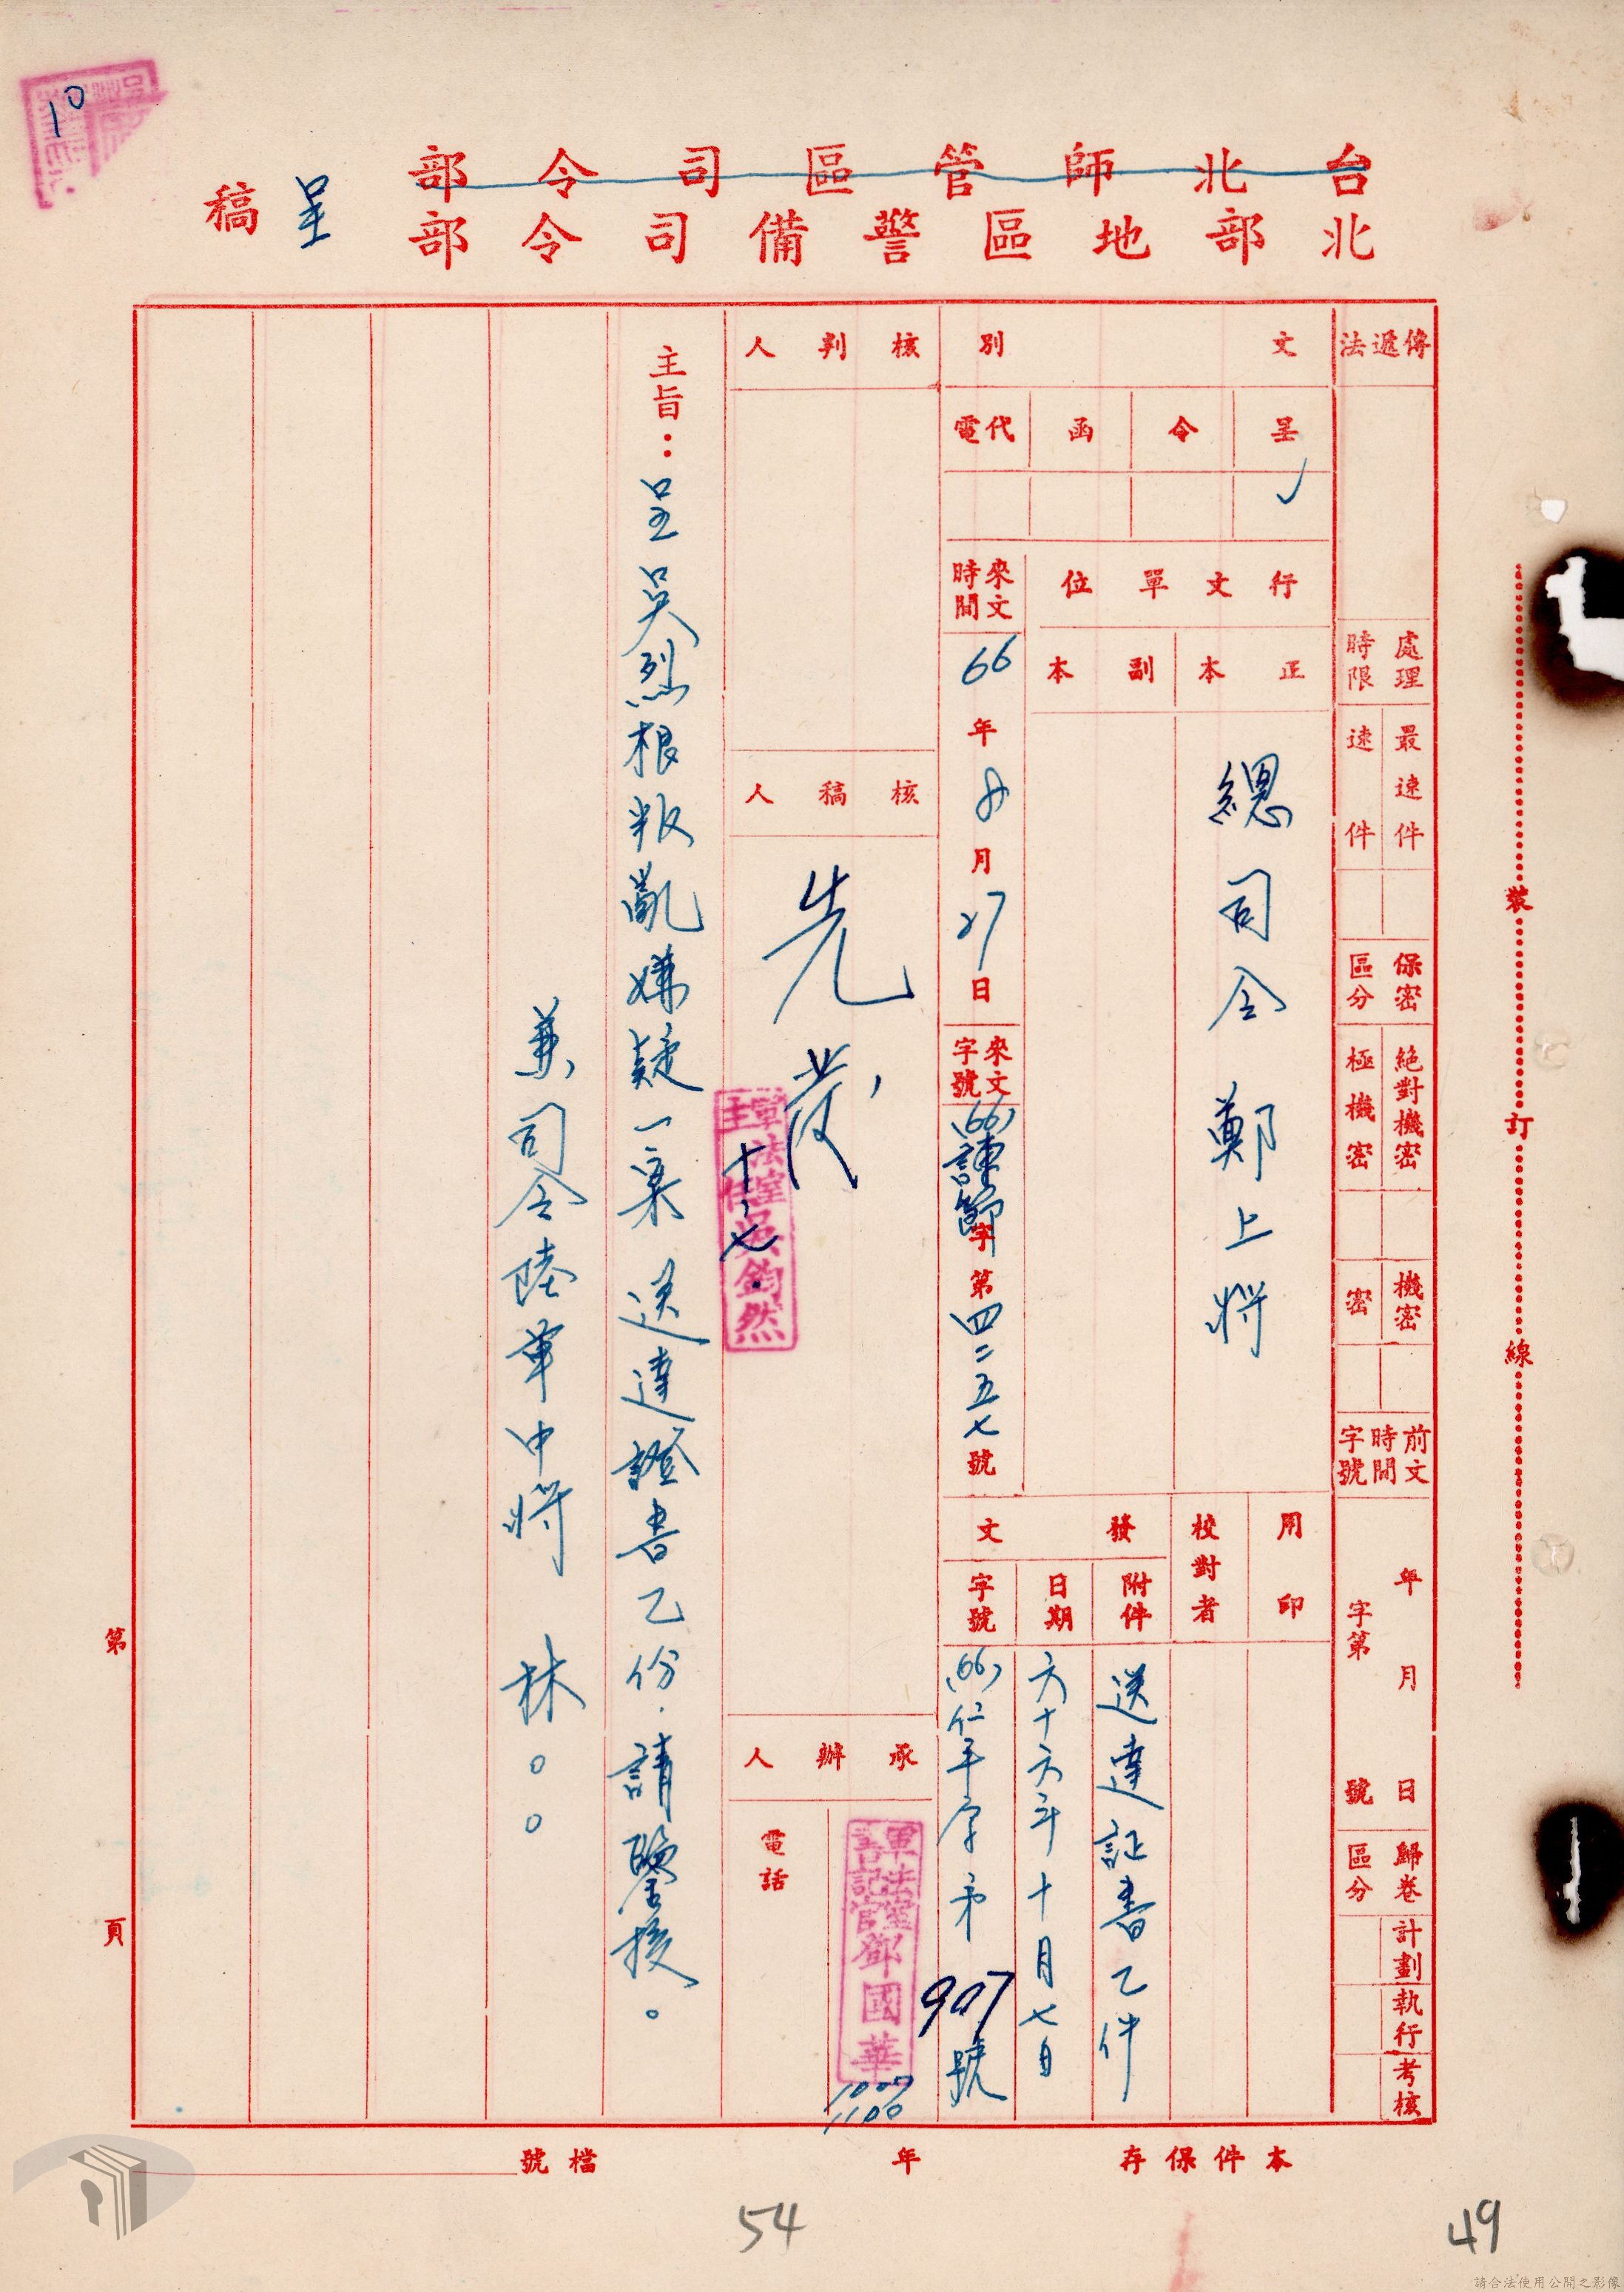 10
台北師管區司令部
北部地區警備司令部
呈
稿
傳遞法
處理時限
最速件
速件
保密區分
絕對機密
極機密
機密
密
前文時間字號
年月日
字第號
歸卷區分
計劃
執行
考核
文別
呈
令
函
代電
✓
行文單位
正本
副本
總司令鄭上將
來文時間
66年8月27日
來文字號
(66)謙節字第四二五七號
用印
校對者
發文
附件
送達証書乙件
日期
六十六年十月七日
字號
(66)仁平字第907號
核判人
核稿人
先發
軍法室主任吳鈞然
十、七.
承辦人
軍法室書記官鄧國華
1007
1100
電話
主旨：呈吳烈根叛亂嫌疑一案送達證書乙份，請鑒核。
兼司令陸軍中將 林○○
裝訂線
第頁
本件保存年
檔號
54
49
請合法使用公開之影像